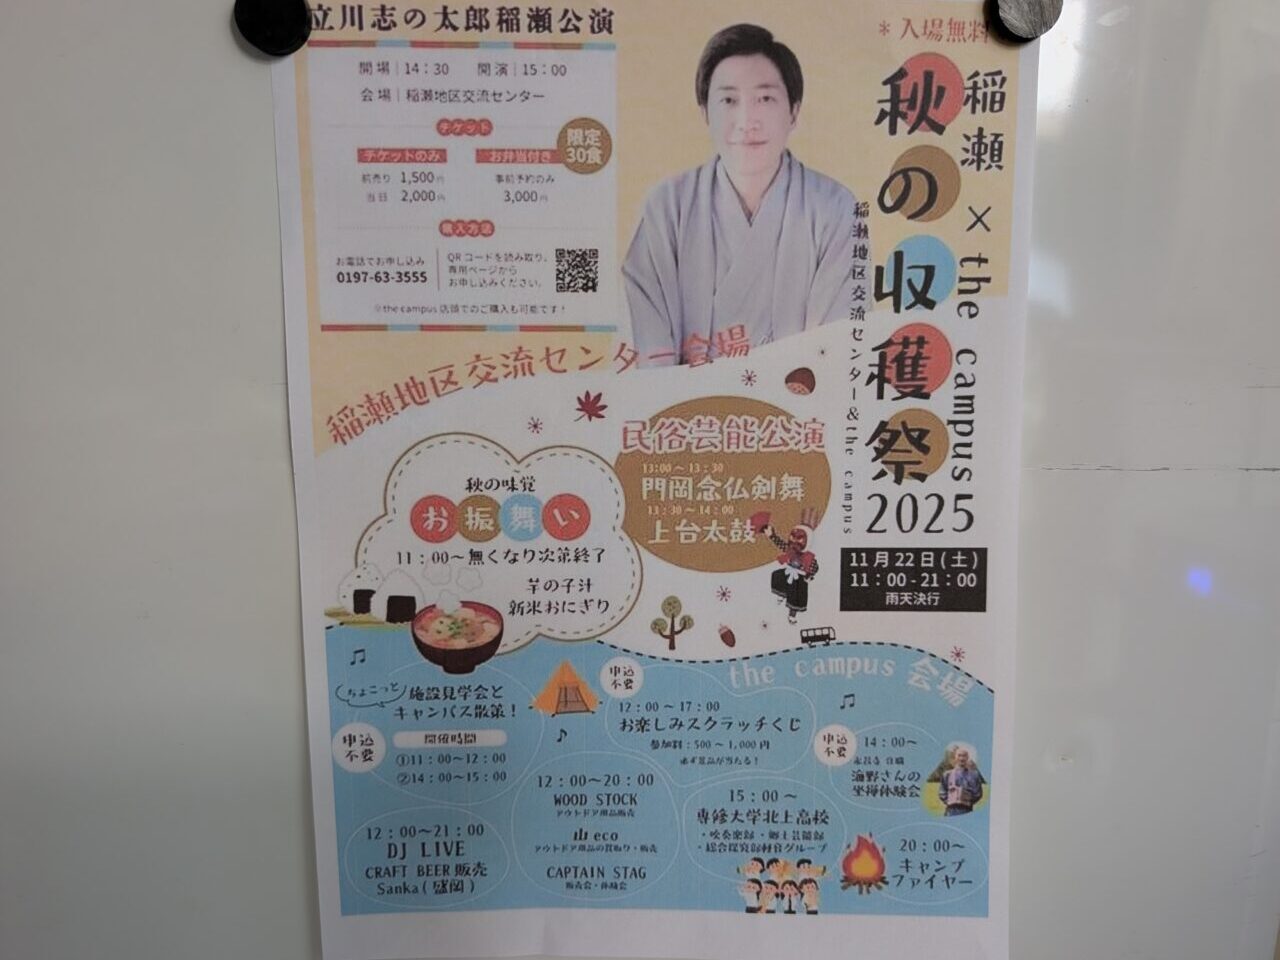 立川志の太郎稲瀬公演
開場｜14：30　開演｜15：00
会場｜稲瀬地区交流センター
チケット
限定
30食
チケットのみ
前売り 1,500円
当日 2,000円
お弁当付き
事前予約のみ
3,000円
購入方法
お電話でお申し込み
0197-63-3555
QRコードを読み取り、
専用ページから
お申し込みください。
※the campus 店頭でのご購入も可能です！
＊入場無料
稲瀬 × the campus
秋の収穫祭
2025
稲瀬地区交流センター&the campus
11月22日(土)
11：00-21：00
雨天決行
稲瀬地区交流センター会場
秋の味覚
お振舞い
11：00〜無くなり次第終了
芋の子汁
新米おにぎり
民俗芸能公演
13:00〜13:30
門岡念仏剣舞
13:30〜14:00
上台太鼓
the campus 会場
ちょこっと
施設見学会と
キャンパス散策！
申込
不要
開催時間
①11：00〜12：00
②14：00〜15：00
申込
不要
12：00〜17：00
お楽しみスクラッチくじ
参加料：500〜1,000円
必ず景品が当たる！
申込
不要
14：00〜
海野さんの
坐禅体験会
12：00〜20：00
WOOD STOCK
アウトドア用品販売
山eco
アウトドア用品の買取り・販売
CAPTAIN STAG
販売会・体験会
12：00〜21：00
DJ LIVE
CRAFT BEER販売
Sanka(盛岡)
15：00〜
専修大学北上高校
・吹奏楽部・郷土芸能部
・総合探究部軽音グループ
20：00〜
キャンプ
ファイヤー